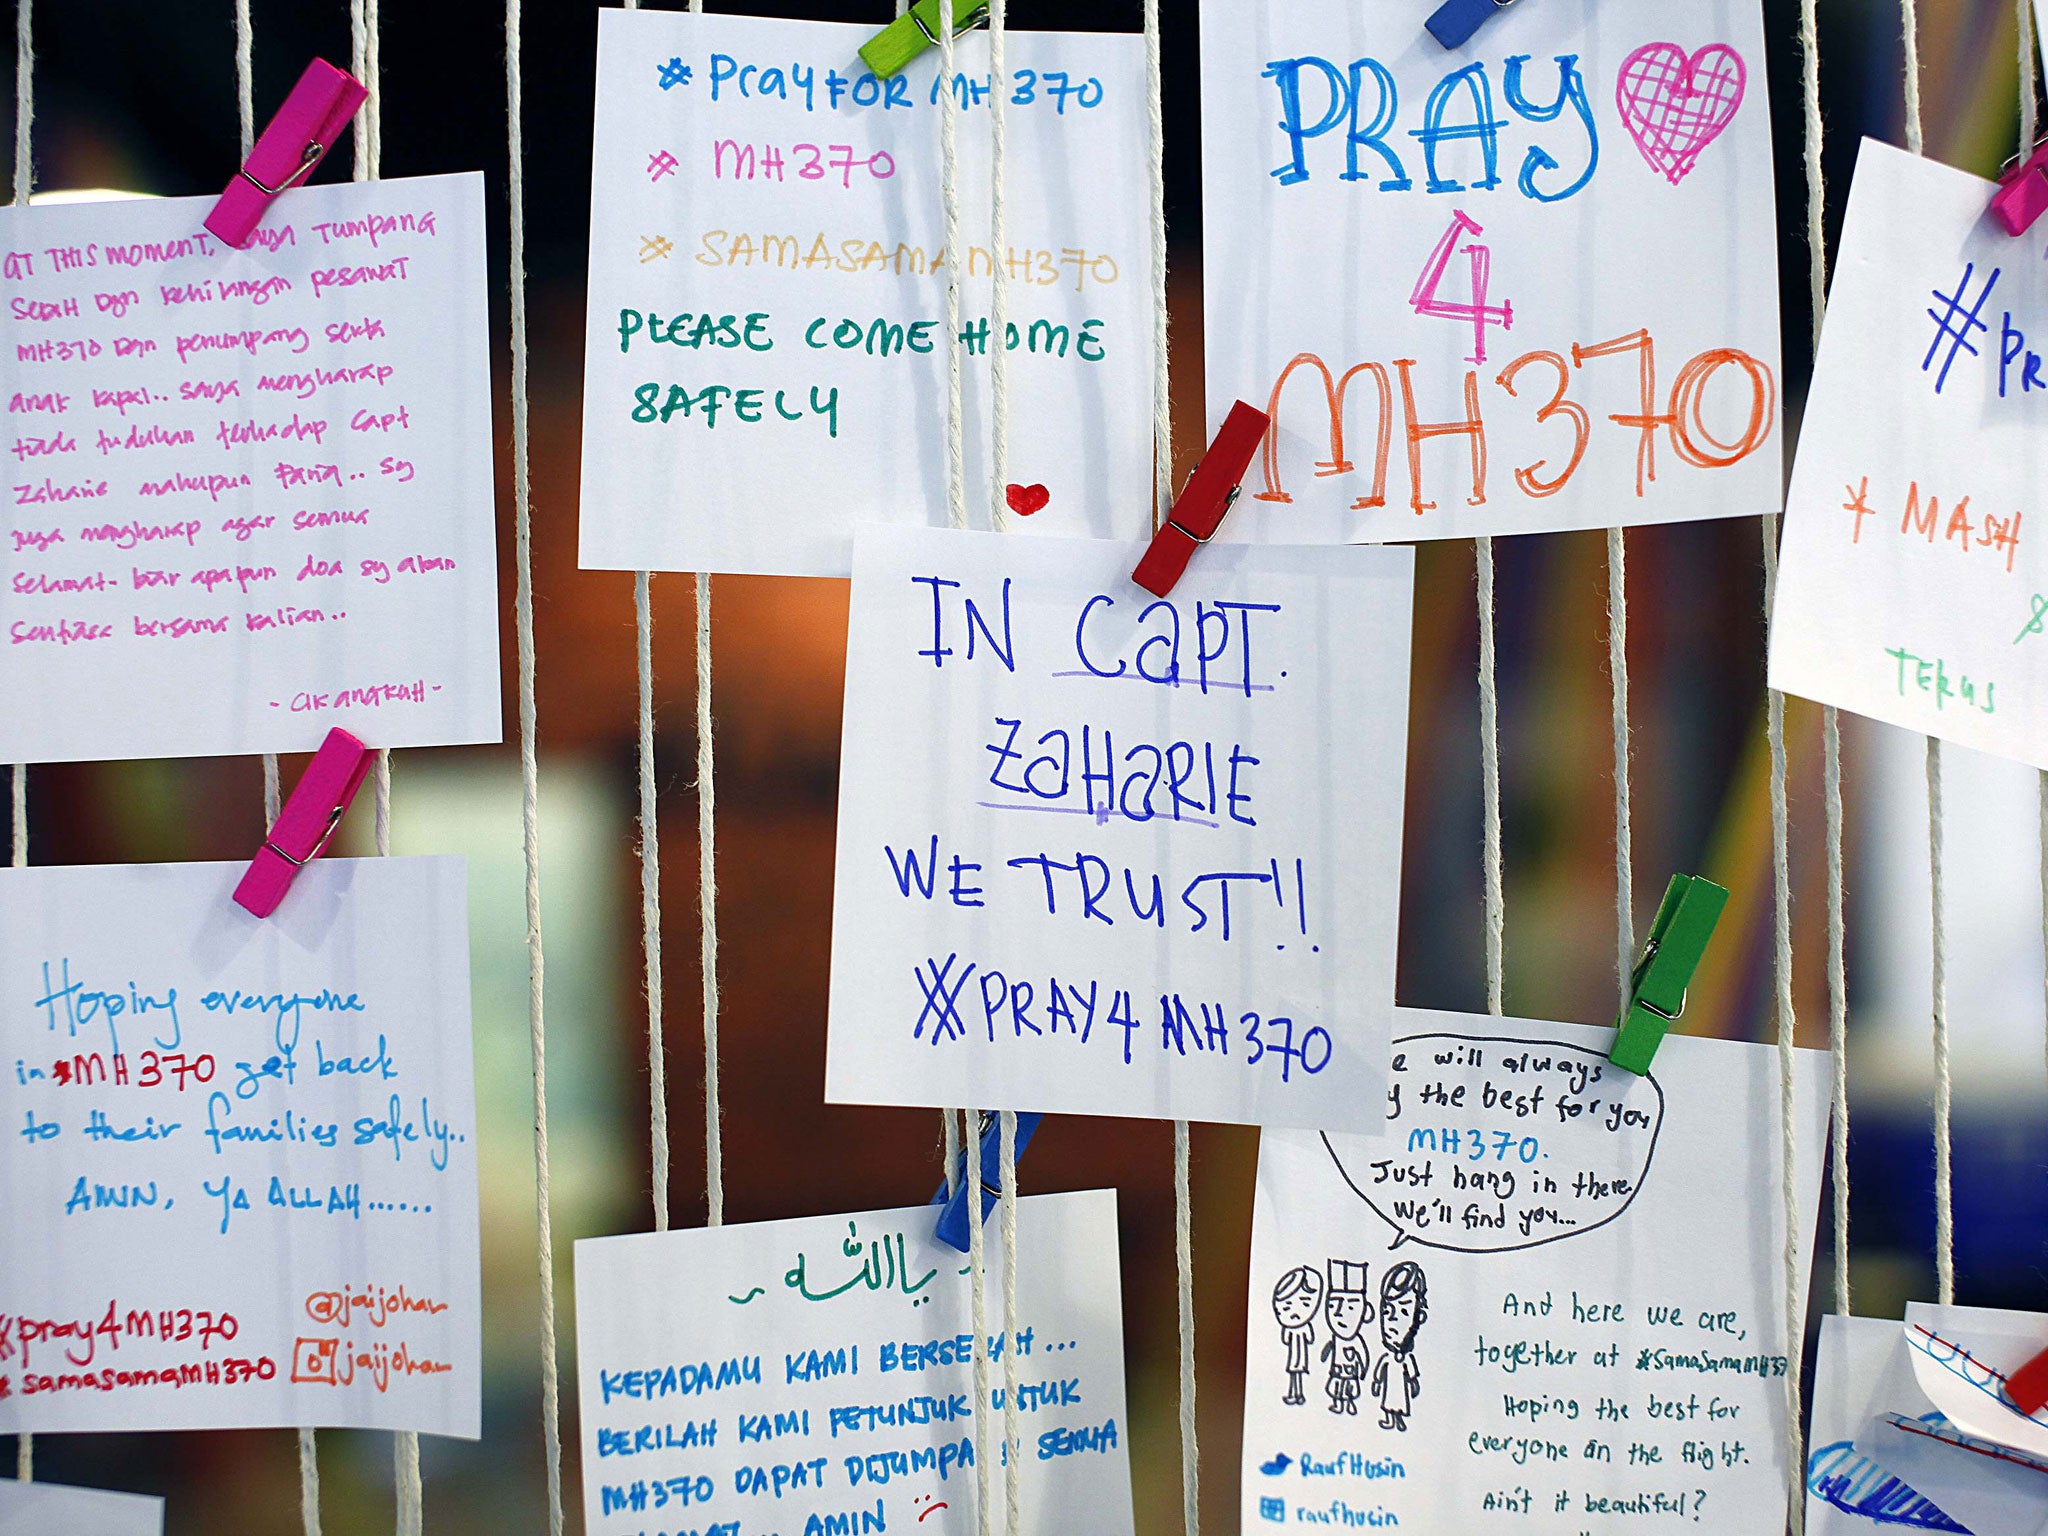 AT THIS MOMENT, saya TUMPANG
SEDIH dgn kehilangan pesawat
MH370 dgn penumpang serta
anak kapal.. saya mengharap
tiada tuduhan terhadap capt
Zaharie mahupun Fariq.. sy
juga mengharap agar semua
selamat- biar apapun doa sy akan
sentiasa bersama kalian..
- CIKANGKUH -
# Pray FOR MH370
# MH370
# SAMASAMA MH370
PLEASE COME HOME
SAFELY
PRAY
4
MH370
#PR
* MASH
TERUS
IN CAPT.
ZAHARIE
WE TRUST!!
#PRAY4 MH370
Hoping everyone
in #MH370 get back
to their families safely..
AMIN, YA ALLAH......
#pray4MH370
# samasamaMH370
@jaijohar
jaijohar
ياالله
KEPADAMU KAMI BERSERAH...
BERILAH KAMI PETUNJUK UNTUK
MH370 DAPAT DIJUMPA SEMUA
AMIN
e will always
y the best for you
MH370.
Just hang in there
We'll find you...
And here we are,
together at #SamaSamaMH37
Hoping the best for
everyone in the flight.
Ain't it beautiful?
RaufHusin
raufhusin